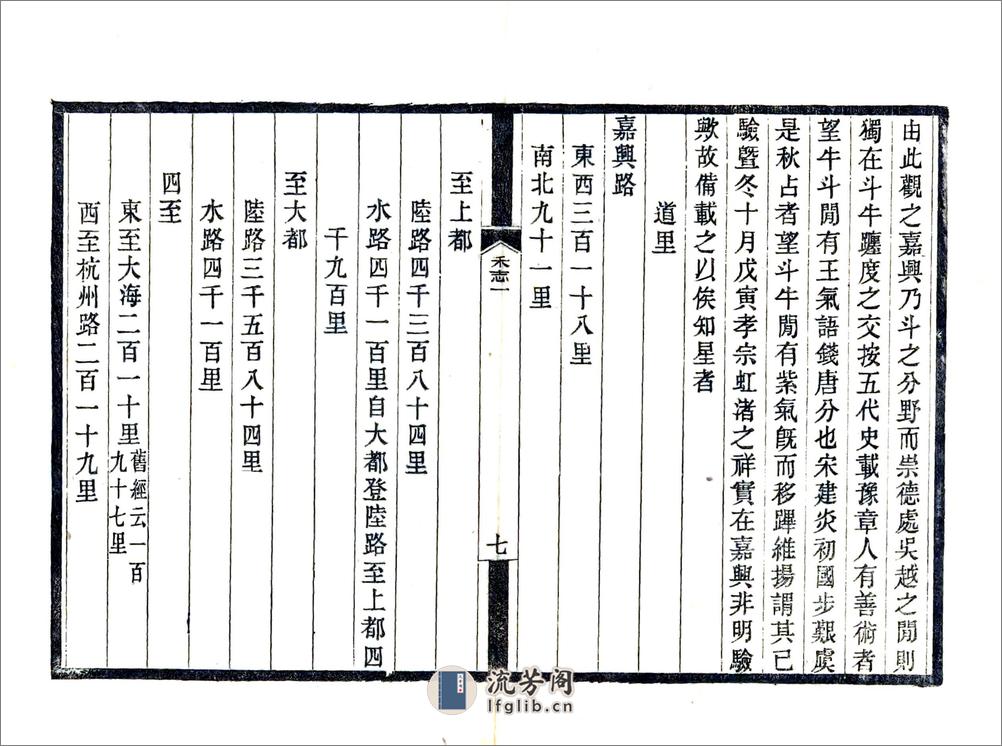 由此觀之嘉興乃斗之分野而崇德處吳越之閒則
獨在斗牛躔度之交按五代史載豫章人有善術者
望牛斗閒有王氣語錢唐分也宋建炎初國步艱虞
是秋占者望斗牛閒有紫氣旣而移蹕維揚謂其已
驗曁冬十月戊寅孝宗虹渚之祥實在嘉興非明驗
歟故備載之以俟知星者
道里
嘉興路
東西三百一十八里
南北九十一里
禾志一
七
至上都
陸路四千三百八十四里
水路四千一百里自大都登陸路至上都四
千九百里
至大都
陸路三千五百八十四里
水路四千一百里
四至
東至大海二百一十里舊經云一百
九十七里
西至杭州路二百一十九里
流芳阁
lfglib.cn